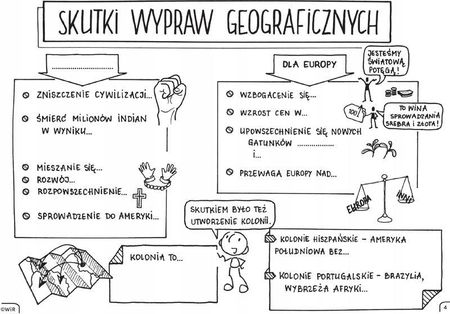 SKUTKI WYPRAW GEOGRAFICZNYCH
........................
ZNISZCZENIE CYWILIZACJI...
ŚMIERĆ MILIONÓW INDIAN
W WYNIKU...
MIESZANIE SIĘ...
ROZWÓJ...
ROZPOWSZECHNIENIE...
SPROWADZENIE DO AMERYKI...
DLA EUROPY
JESTEŚMY
ŚWIATOWĄ
POTĘGĄ!
WZBOGACENIE SIĘ...
WZROST CEN W...
100
TO WINA
SPROWADZANIA
SREBRA I ZŁOTA!
UPOWSZECHNIENIE SIĘ NOWYCH
GATUNKÓW ..................
I...
PRZEWAGA EUROPY NAD...
EUROPA
KOLONIA TO...
SKUTKIEM BYŁO TEŻ
UTWORZENIE KOLONII.
KOLONIE HISZPAŃSKIE - AMERYKA
POŁUDNIOWA BEZ...
KOLONIE PORTUGALSKIE - BRAZYLIA,
WYBRZEŻA AFRYKI...
©WiR
4